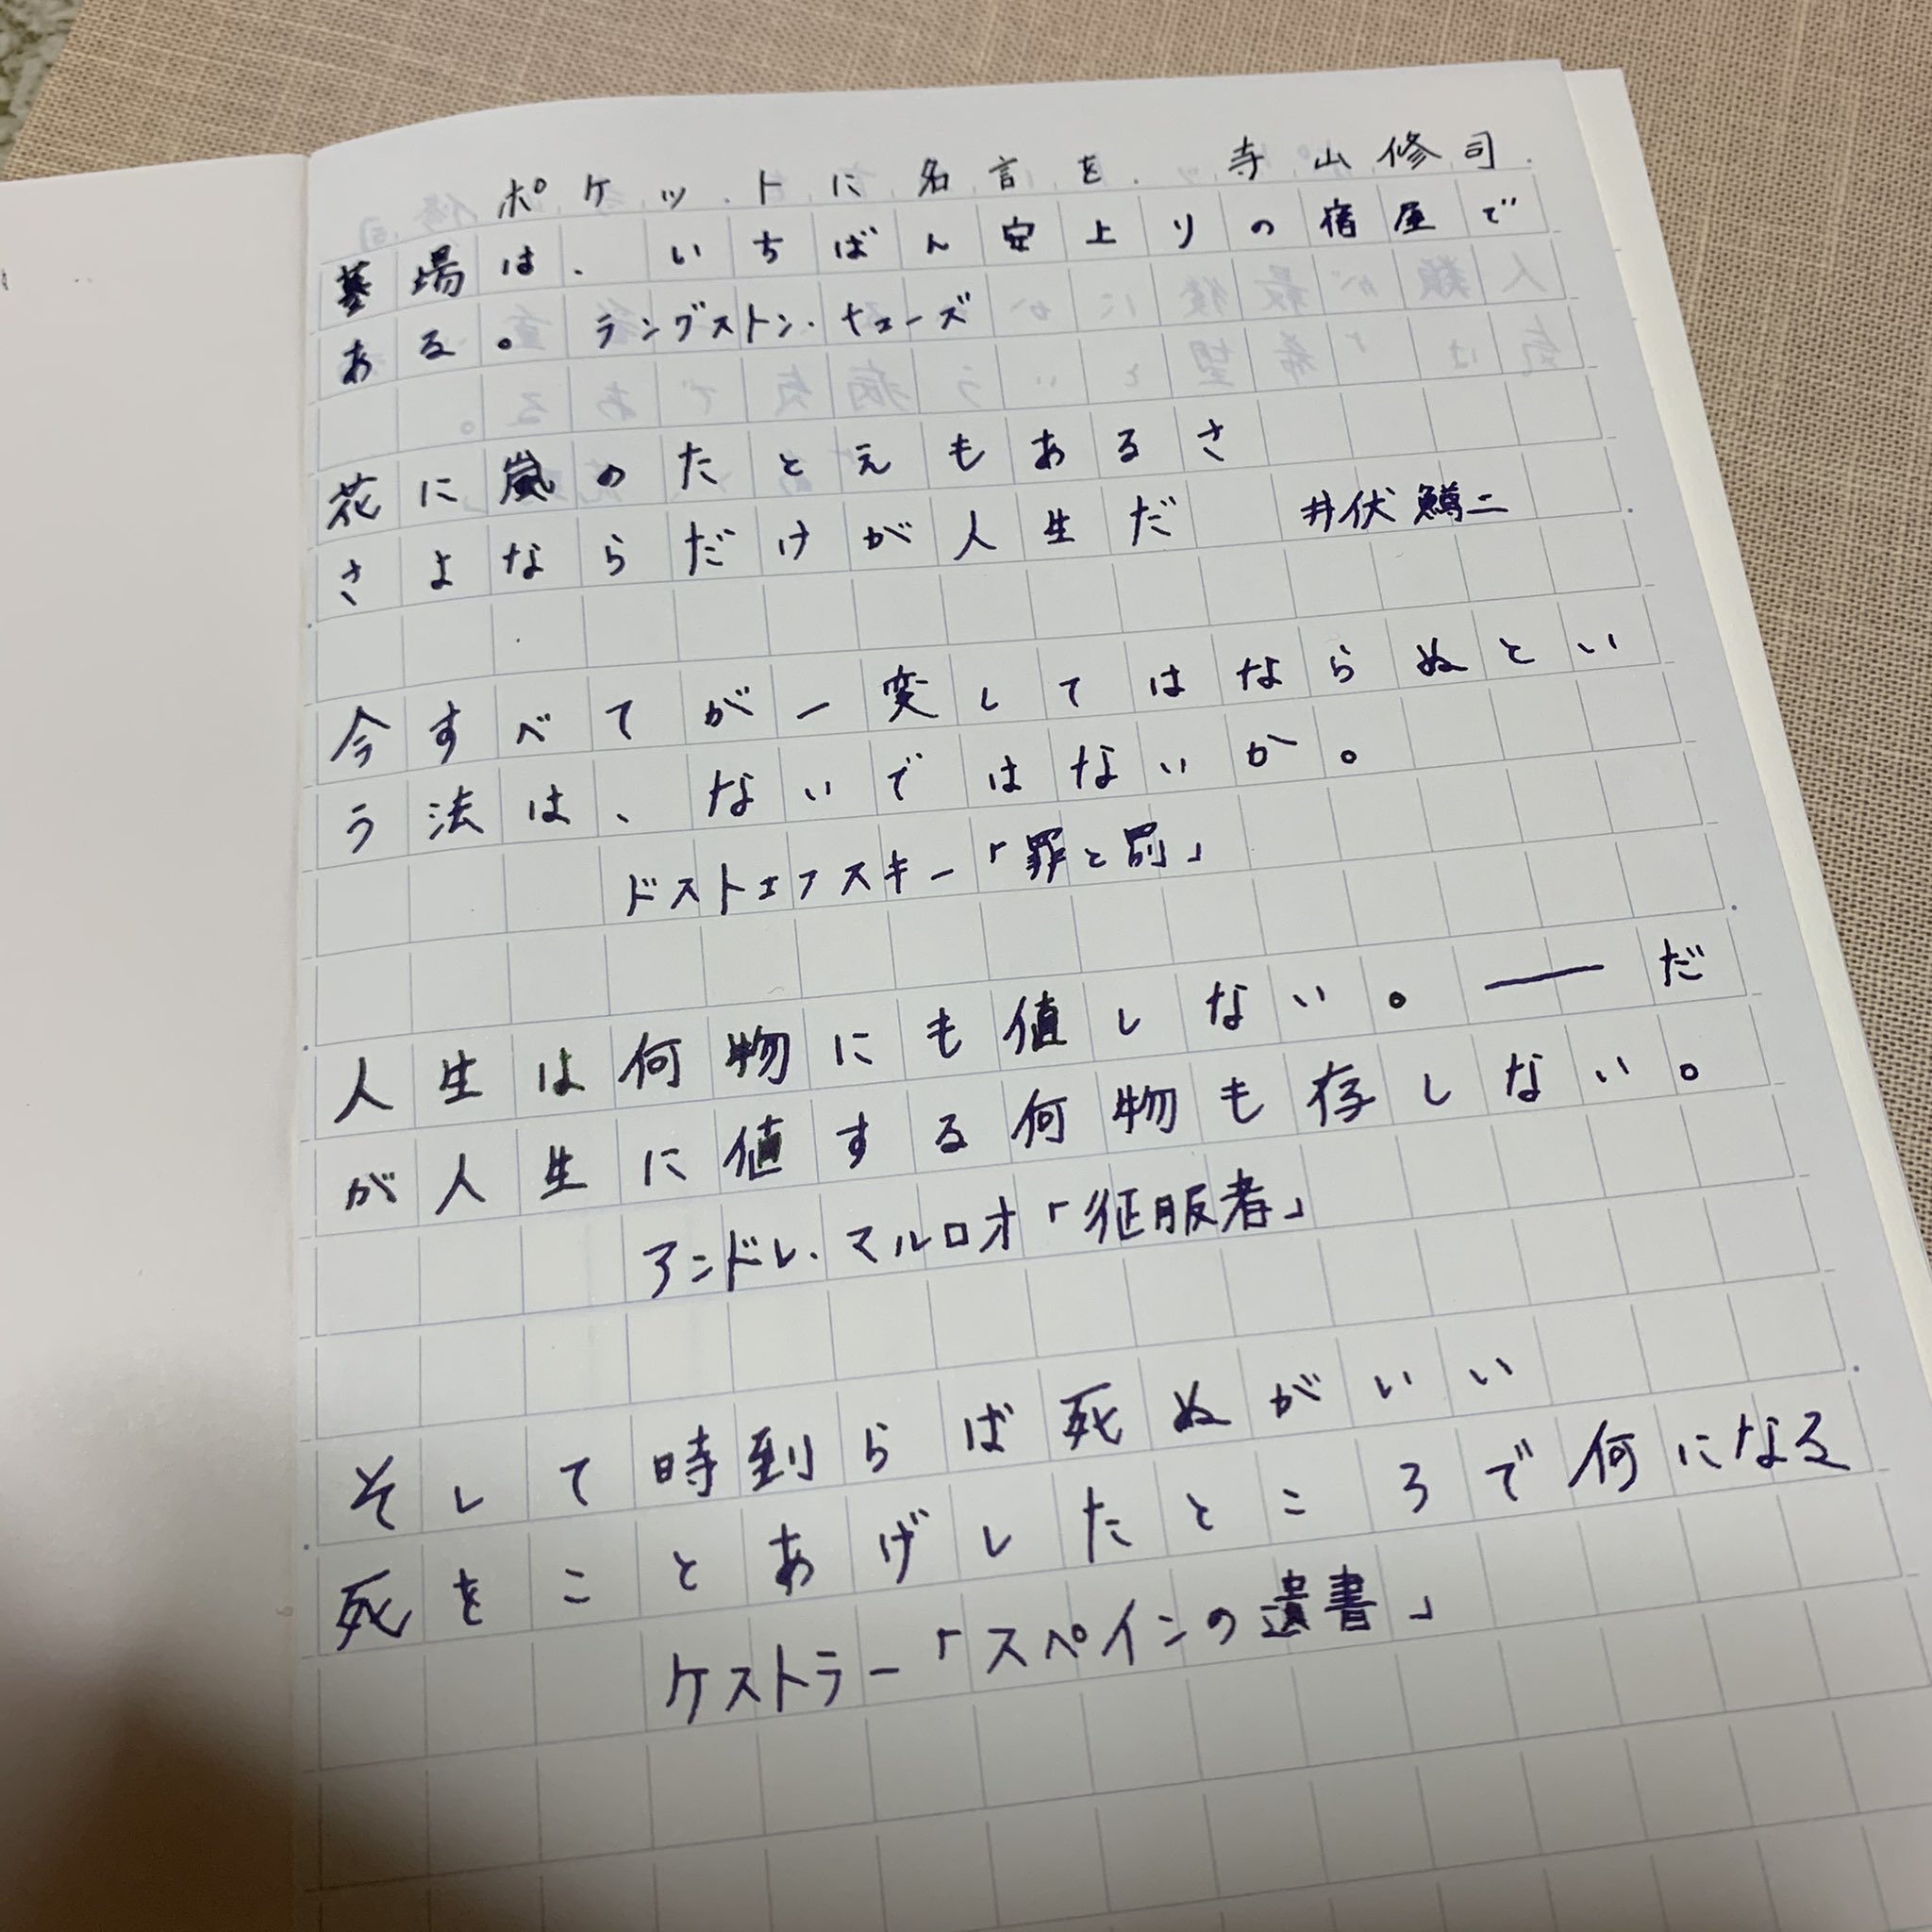 ポケットに名言を 寺山修司
墓場は、いちばん安上りの宿屋で
ある。 ラングストン・ヒューズ
花に嵐のたとえもあるさ
さよならだけが人生だ 井伏鱒二
今すべてが一変してはならぬとい
う法は、ないではないか。
ドストエフスキー「罪と罰」
人生は何物にも値しない。――だ
が人生に値する何物も存しない。
アンドレ・マルロオ「征服者」
そして時到らば死ぬがいい
死をことあげしたところで何になる
ケストラー「スペインの遺書」